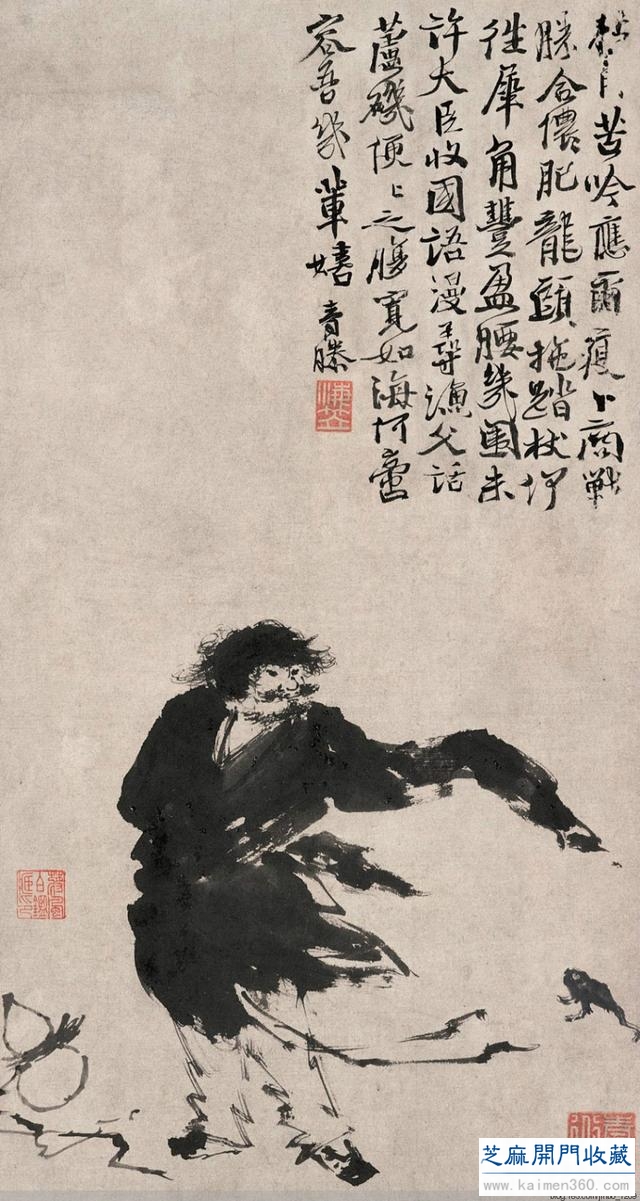 苦吟應爾瘦卜商戰
勝合儂肥龍頭拖踏杖
往犀角豐盈腰幾圍未
許大臣收國語漫尋漁父話
蘆磯便上之腹寬如海何啻
容吾幾輩嬉 青滕
芝麻開門收藏
www.kaimen360.com